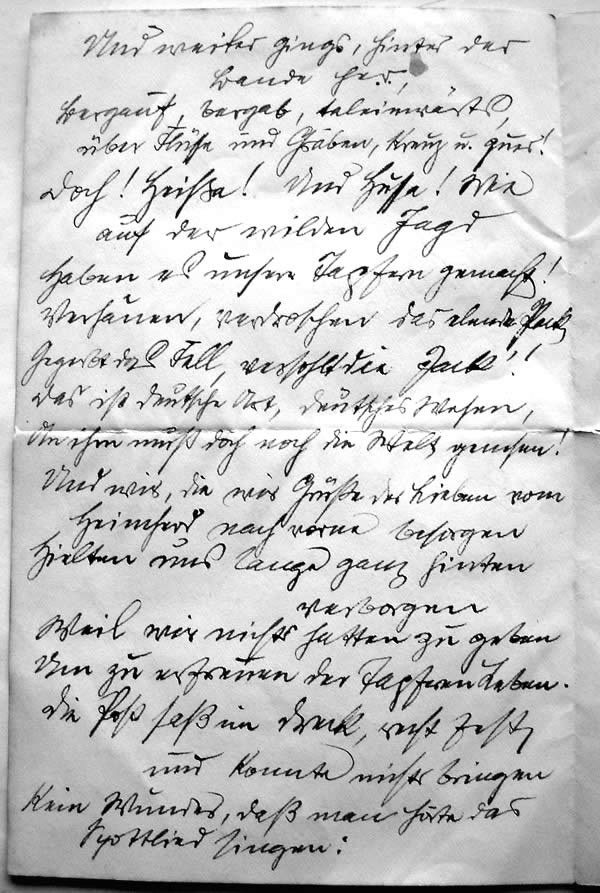 Und weiter gings, hinter der
Bande her,
Bergauf, bergab, taleinwärts,
über Flüsse und Gräben, Kreuz u. quer!
Doch! Heißa! Und Husa! Wie
auf der wilden Jagd
Haben es unsere Tapfern gemacht!
Verhauen, verdroschen das elende Pack,
Gegerbt das Fell, versohlt die Jack'!!
Das ist deutsche Art, deutsches Wesen,
An ihm muß doch noch die Welt genesen!
Und wir, die wir Grüße der Lieben vom
Heimherd nach vorne besorgen
Hielten uns lange ganz hinten
verborgen
Weil wir nichts hatten zu geben
Um zu erfreuen der Tapferen Leben.
Die Post saß im Dreck, recht fest,
und konnte nichts bringen
Kein Wunder, daß man hörte das
Spottlied singen: